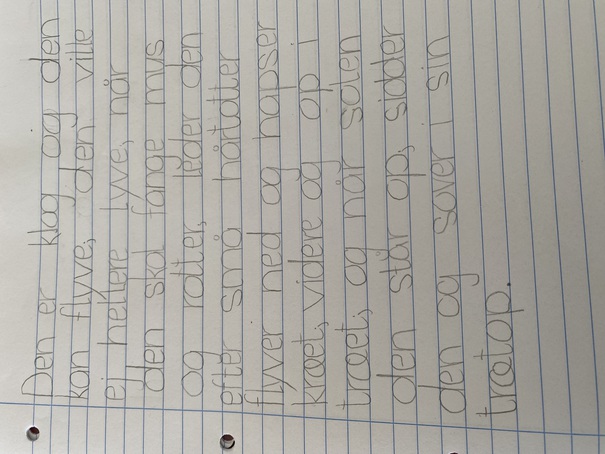 Den er klog og den
kan flyve, den ville
ej hellere lyve, når
den skal fange mus
og rotter, leder den
efter små hårtotter
flyver ned og hapser
kræet, videre og op i
træet, og når solen
den står op, sidder
den og sover i sin
trætop.